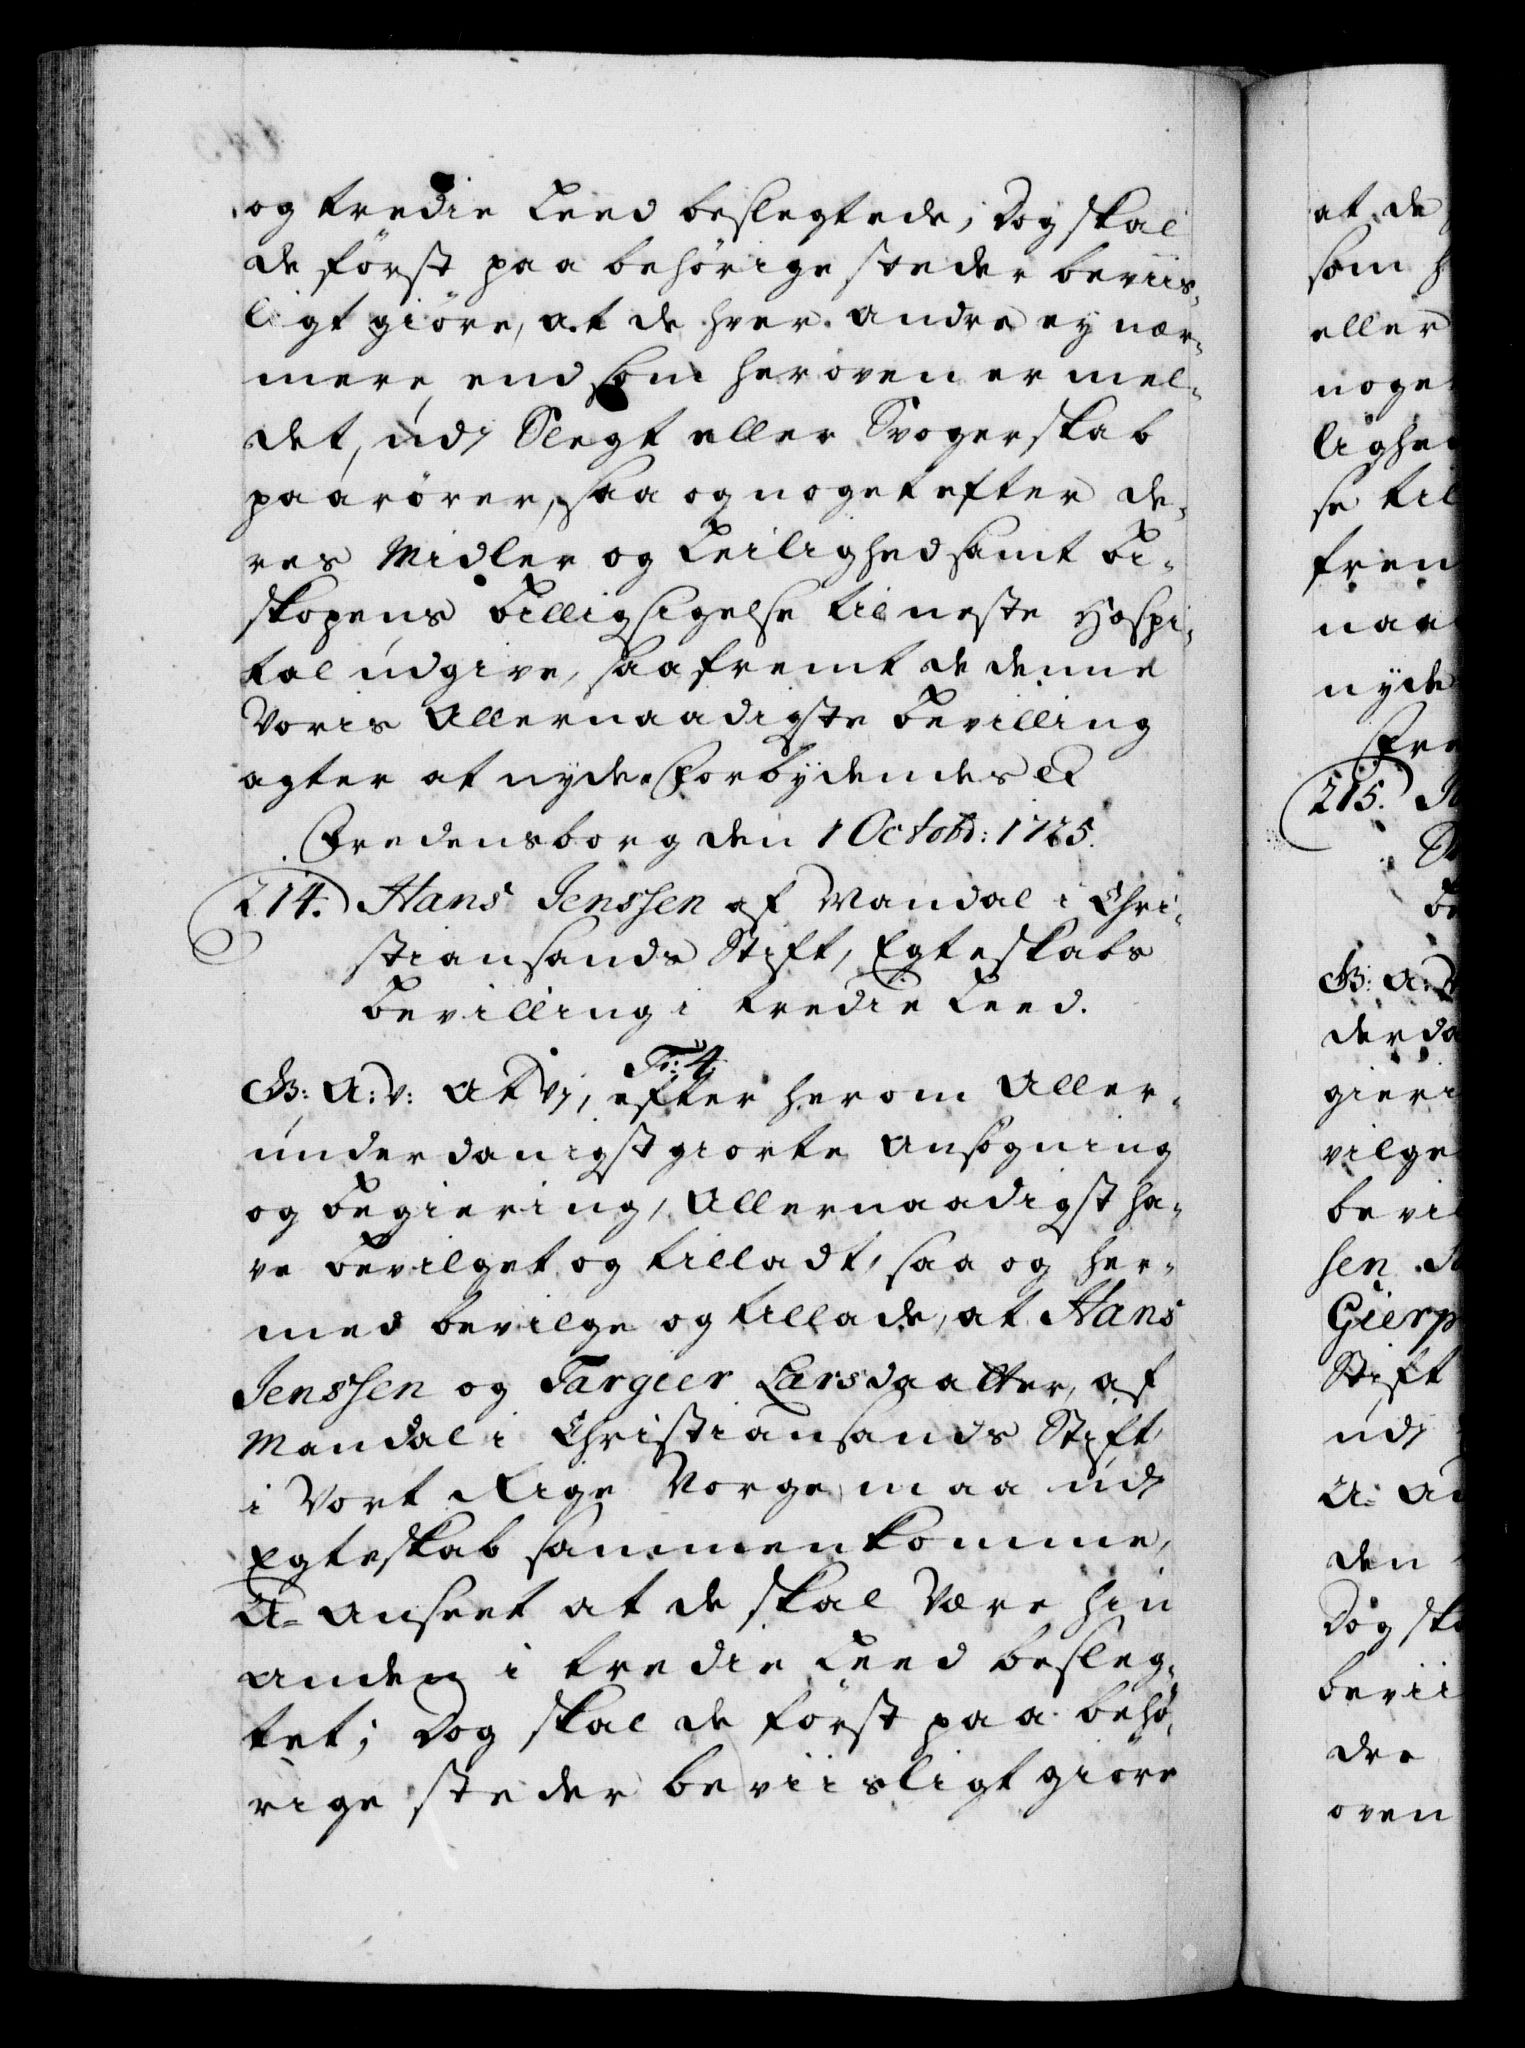 og tredie Leed beslegtede; Dog skal
de först paa behörige steder beviis-
ligt giöre, at de hver andre ey nær-
mere, end som her oven er mel-
det, udj Slegt eller Svogerskab
paarörer, saa og noget efter de-
res Midler og Leilighed samt Bi-
skopens billigsigelse til neste Hospi-
tal udgive, saafremt de denne
Voris Allernaadigste Bevilling
agter at nyde. Forbydendes &
Fredensborg den 1 Octobr: 1725.
214. Hans Jenssen af Mandal i Chri-
stiansands Stift, Egteskabs
Bevilling i tredie Leed.
Fr: 4.
G: A: V: At Vj, efter herom Aller-
underdanigst giorte Ansögning
og Begiering, Allernaadigst ha-
ve bevilget og tilladt, saa og her-
med bevilge og tillade, at Hans
Jenssen og Targier Larsdaatter, af
Mandal i Christiansands Stift
i Vort Rige Norge, maa udj
Egteskab sammenkomme,
U-anseet at de skal være hin
anden i tredie Leed besleg-
tet; Dog skal de först paa behö-
rige steder beviisligt giöre
at de
som h
eller
noget
lighed
se til
frem
naa
nyde
Fre
215.
be
G: A: V
derda
gieri
vilge
bevil
sen
Gierp
Stift
udj
U- an
den
Dog ska
bevii
dre
oven